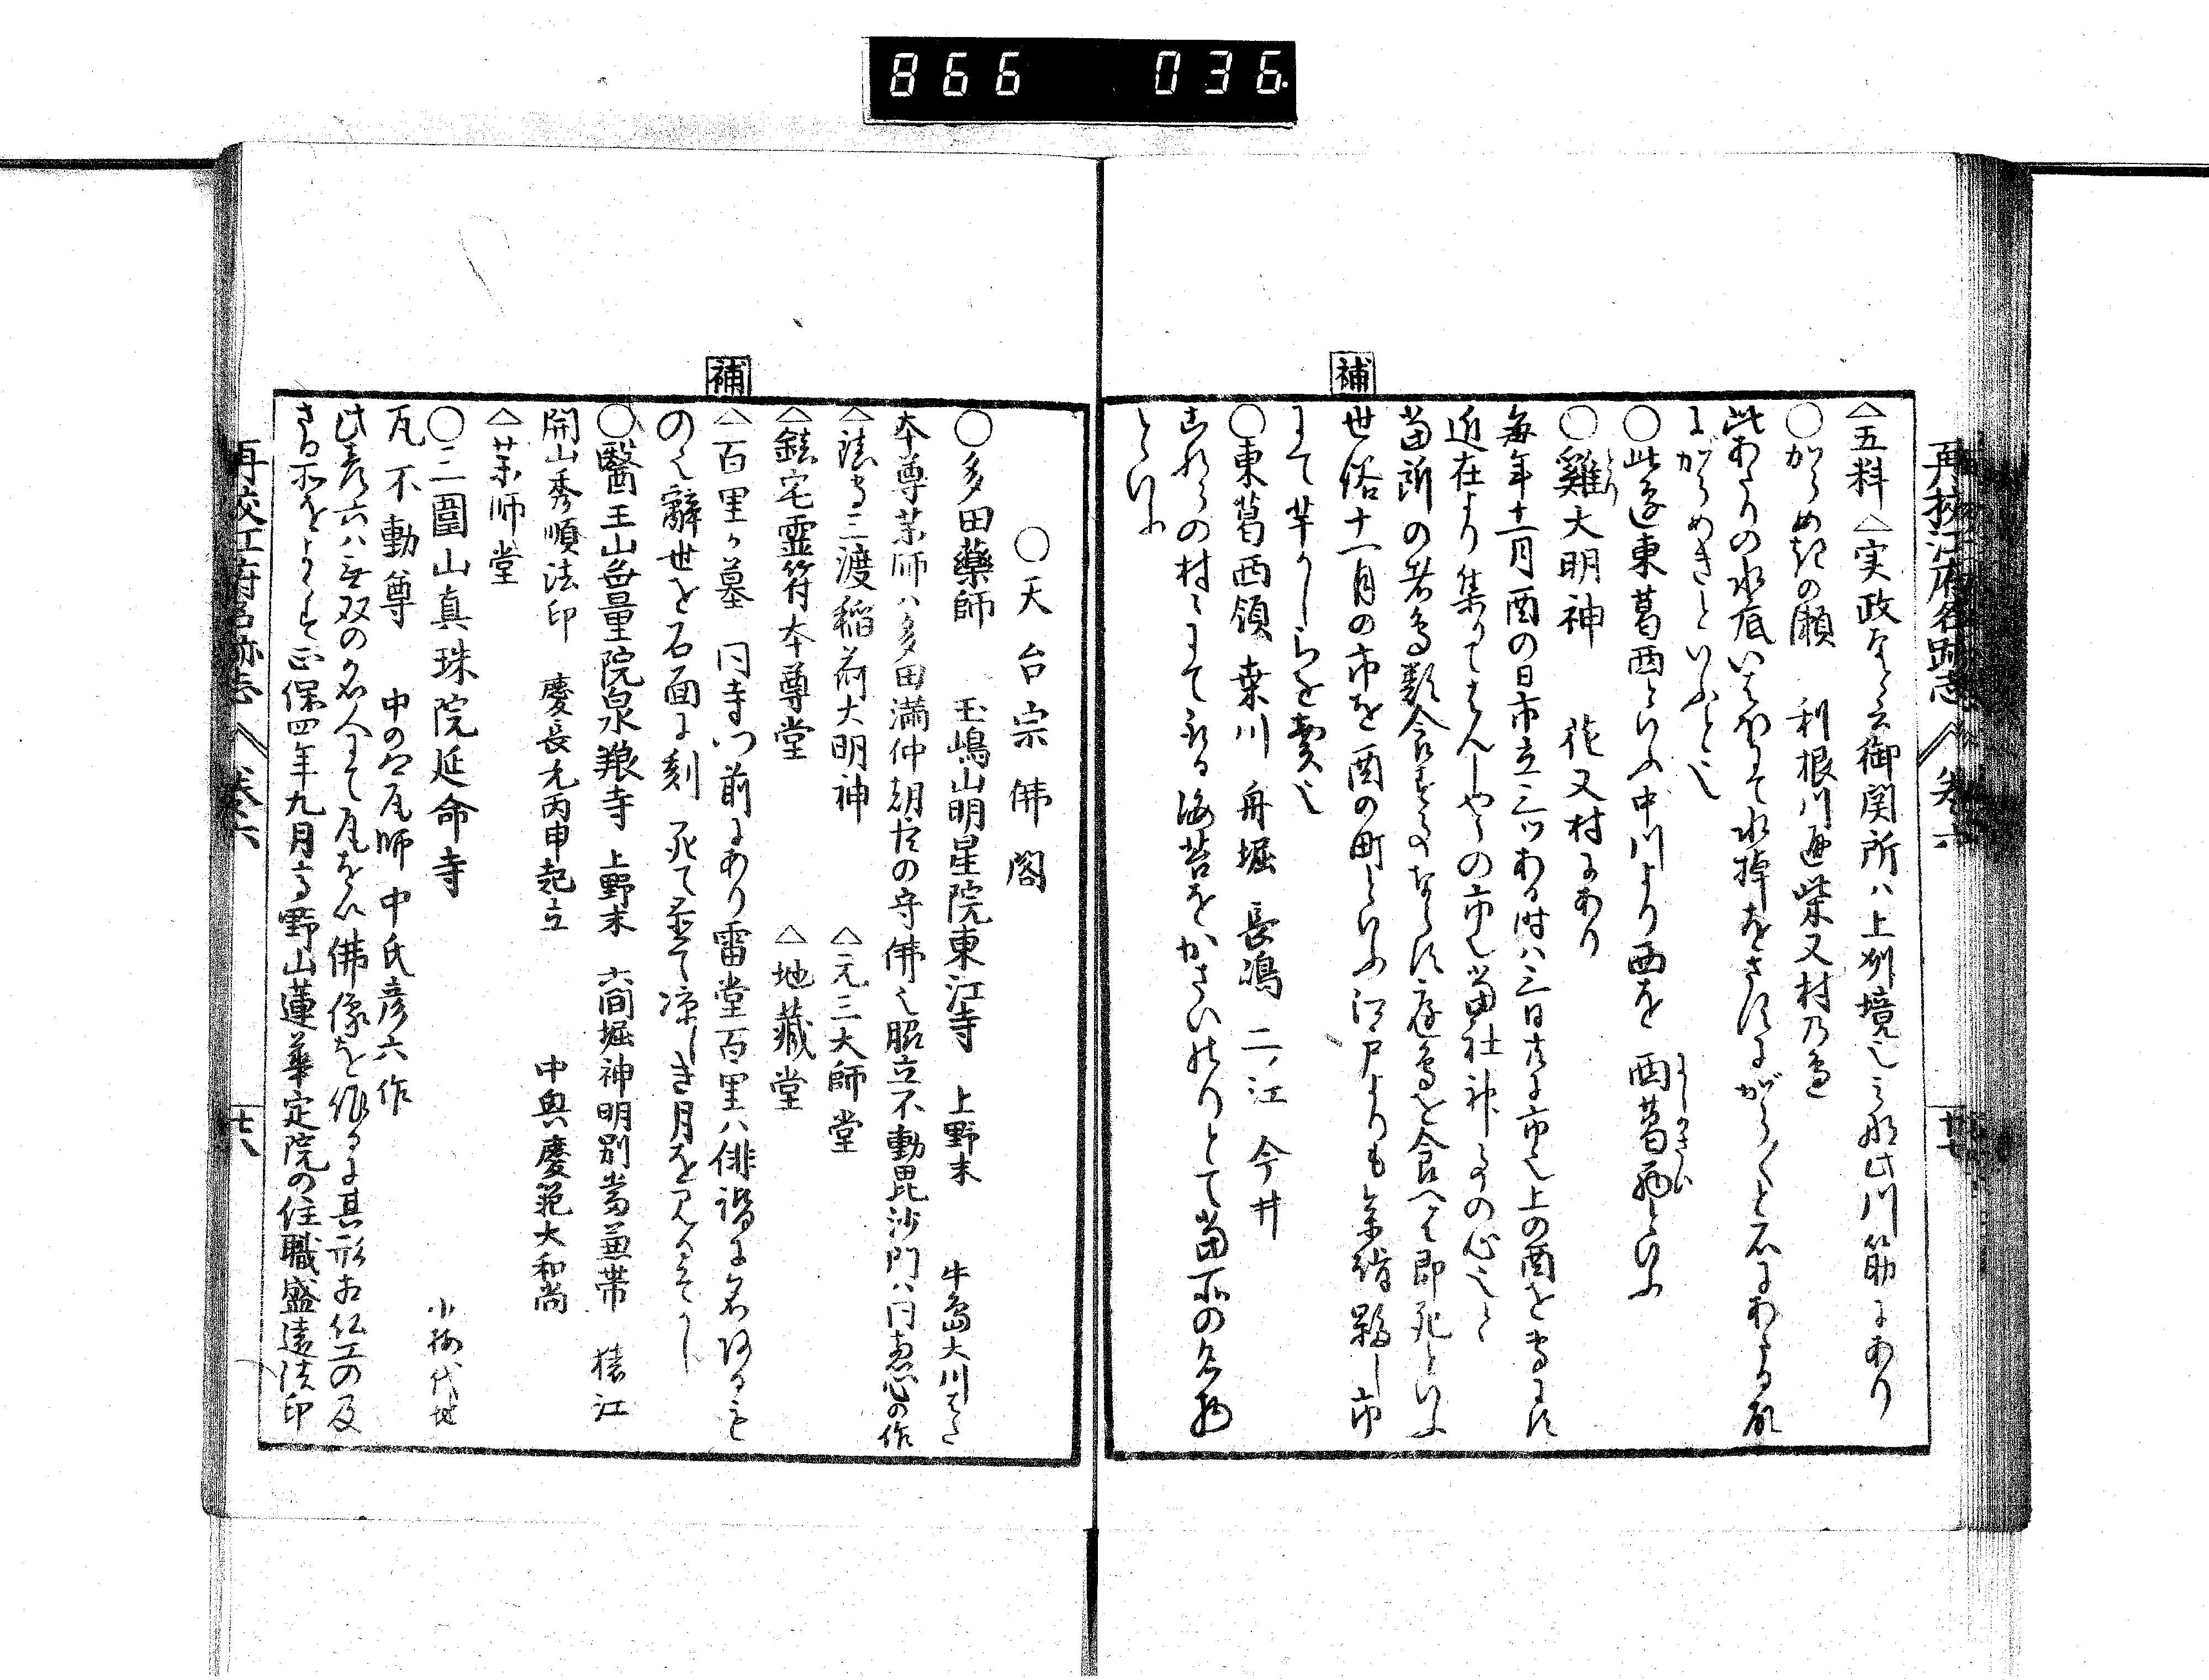 866 036
再校江府名跡志 巻六 廿七
△五料△実政なと云御関所ハ上州境也みな此川筋にあり
○からめきの瀬 利根川通柴又村乃邊
此あたりの水底いしにて水棹をさすにがら〱と石にあたる故
にがらめきといふと也
○此邊東葛西といふ中川より西を西葛西といふ
○雞大明神 花又村にあり
毎年十一月酉の日市立三ツある时ハ三日共に市也上の酉を専にす
近在より集りてはんしやうの市也當社神事の心也と
當所の者鳥類食する事ならす庭鳥を食へは即死といふ
補
世俗十一月の市を酉の町といふ江戸よりも参詣夥し市
にて芋かしらを賣也
○東葛西領 桑川 舟堀 長嶋 二ノ江 今井
これらの村々にて取る海苔をかさいのりとて當所の名物
といふ
○天台宗佛閣
○多田藥師 玉嶋山明星院東江寺 上野末 牛島大川はた
本尊茉師ハ多田満仲朝臣の守佛也脇立不動毘沙門ハ同恵心の作
△三渡稲荷大明神 △元三大師堂
△鎮宅霊符本尊堂 △地藏堂
補
△百里ヶ墓 同寺門前にあり雷堂百里ハ俳諧に名ある
の也辭世を石面に刻 死て置て凉しき月を見るそかし
○醫王山無量院泉䅣寺 上野末 六間堀神明別當兼帯 猿江
開山秀順法印 慶長元丙申起立 中興慶範大和尚
△茉師堂
○三圍山真珠院延命寺 小梅代地
瓦不動尊 中の郷瓦師中氏彦六作
此彦六ハ無双の名人にて瓦を以佛像を作るに其形お仏工の及
さる所をよくす正保四年九月高野山蓮華定院の住職盛遠法印
再校江府名跡志 巻六 廿八